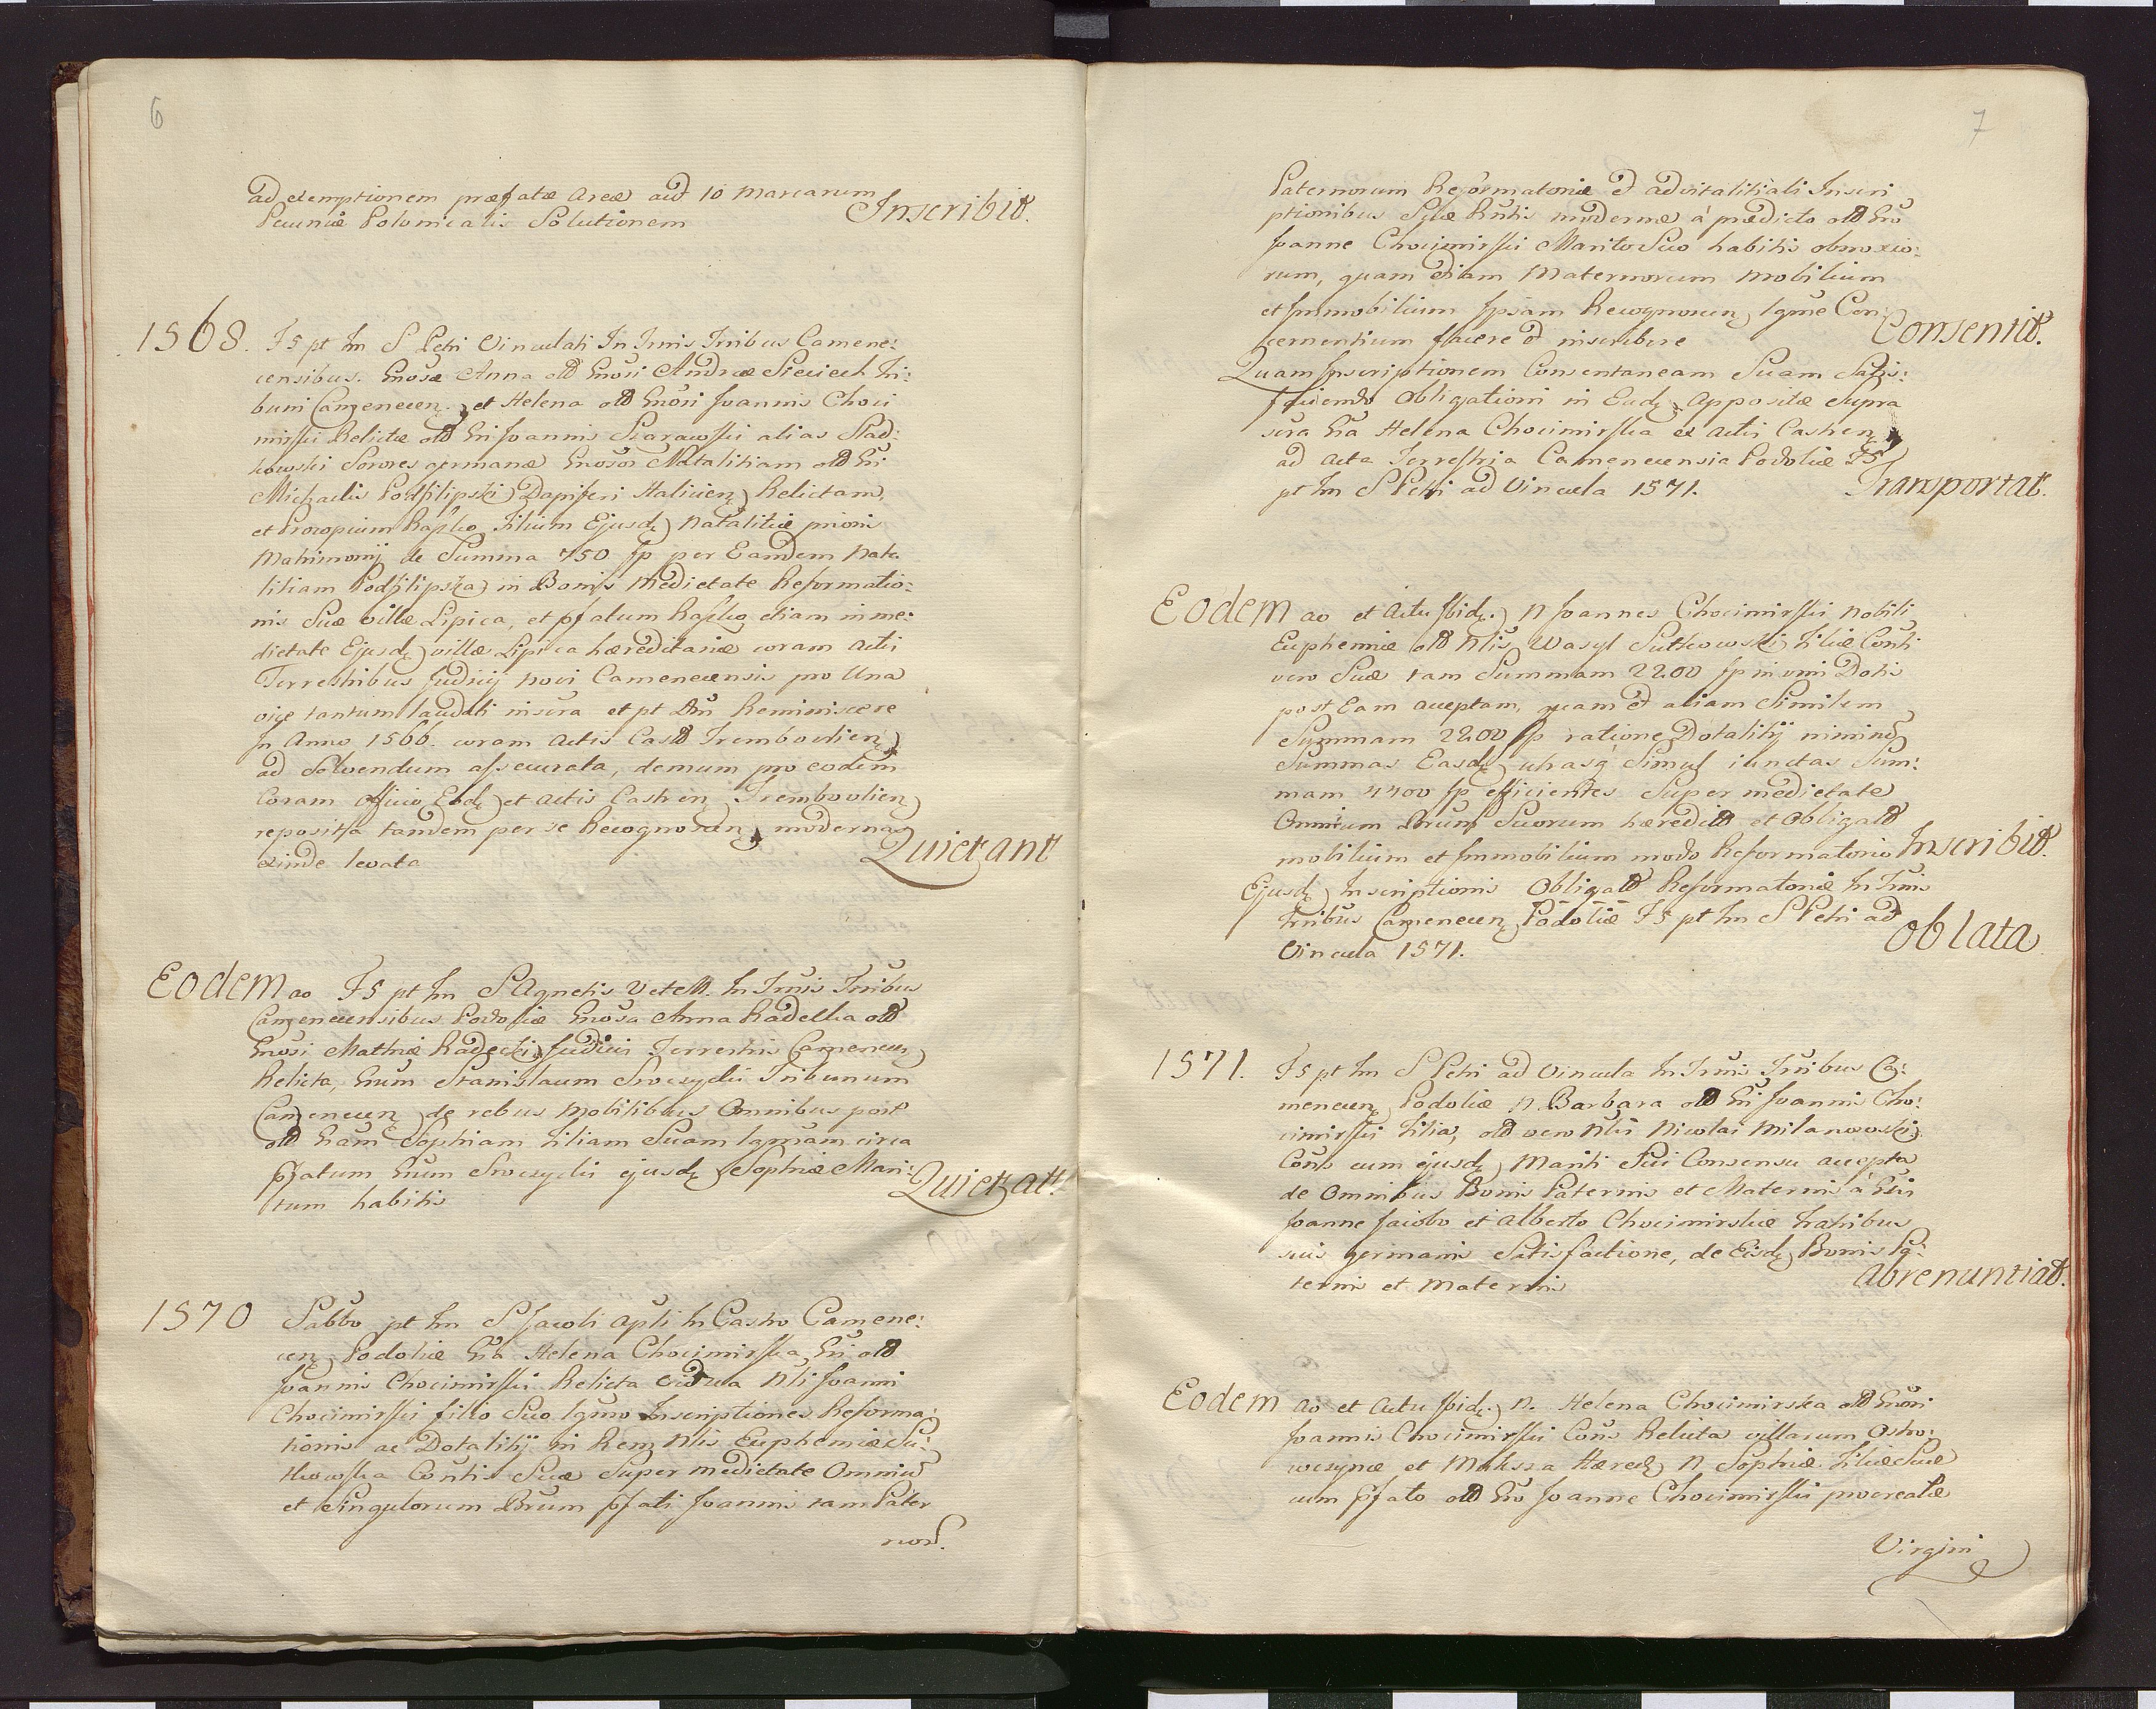 6
ad exemptionem præfatæ Areæ aut 10 Marcarum
Pecuniæ Polonicalis Solutionem Inscribit.
1568. F5 pt Fm S Petri Vinculati In Trnis Tribus Camene:
censibus. Gnosæ Anna olt Gnosi Andreæ Sieciech Tri:
buni Camenecen. et Helena olt Gnosi Joannis Choci
mirski Relictæ olt Gsi Joannis Skarawski alias Slad:
kowski Sorores germanæ Gnosor Natalitiam olt Gsi
Michaelis Podfilipski Dapiferi Halicien Relictam,
et Procopium Rapko Filium Ejusd Natalitiæ prioris
Matrimonij de Summa 750 fp per Eandem Nata
litiam Podfilipska in Bonis Medietate Reformatio:
nis Suæ villæ Lipica, et pfatum Rapko etiam in me:
dietate Ejusd villæ Lipica hæreditariæ coram Actis
Terrestribus Judicij novi Camenecensis pro Una
vice tantum laudati inscra et pt Dm Reminiscere
In Anno 1566. coram Actis Castr Trembovlien
ad Solvendum assecurata, demum pro eodem
Coram Officio Eod et Actis Castren Trembovlien
reposita tandem per se Recognoscen moderna
exinde levata Quietant
Eodem ao F5 pt Fm S Agnetis V et M. In Trnis Tribus
Camenecensibus Podoliæ Gnosa Anna Radecka olt
Gnosi Mathiæ Radecki Judicis Terrestris Camenecen
Relicta, Gnum Stanislaum Sroczycki Tribunum
Camenecen de rebus Mobilibus Omnibus post
olt Gnam Sophiam Filiam Suam Lgmam circa
pfatum Gnum Sroczycki ejusd Sophiæ Mari:
tum habitis Quietat.
1570 Sabbo pt Fm S Jacobi Apli In Castro Camene:
cen Podoliæ Gsa Helena Chocimirska, Gsi olt
Joannis Chocimirski Relicta Vidua Nli Joanni
Chocimirski filio Suo Lgmo Inscriptiones Reforma:
tionis ac Dotalitij in Rem Nlis Euphemiæ Su:
tkowska Contis Suæ Super medietate Omniu
et Singulorum Brum pfati Joannis tam Pater
nor.
7
Paternorum Reformatoriæ et advitalitiali Inscri
ptionibus Ipsæ Rntis modernæ à prædicto olt Gso
Joanne Chocimirski Marito Suo habitis obnoxio:
rum, quam etiam Maternorum Mobilium
et Immobilium Ipsam Recognoscen Lgme Con:
cernentium facere et inscribere Consentit.
Quam Inscriptionem Consentaneam Suam Satis:
faciendo Obligationi in Ead Appositæ Supra
scra Gsa Helena Chocimirska ex Actis Castren
ad Acta Terrestria Camenecensia Podoliæ F5
pt Fm S Petri ad Vincula 1571. Transportat.
Eodem ao et Actu ibid. N Joannes Chocimirski Nobili
Euphemiæ olt Nlis Wasyl Sutkowski Filiæ Conti
vero Suæ tam Summam 2200 fp in vim Dotis
post Eam acceptam, quam et aliam Similem
Summam 2200 fp ratione Dotalitij nimirum
Summas Easd utrasq Simul iunctas Sum:
mam 4400 fp efficientes Super medietate
Omnium Brum Suorum hæredit et Obligat
mobilium et Immobilium modo Reformatorio Inscribit.
Ejusd Inscriptionis Obligat Reformatoriæ In Trnis
Tribus Camenecen Podoliæ F5 pt Fm S Petri ad
Vincula 1571. Oblata
1571. F5 pt Fm S Petri ad Vincula In Trnis Tribus Ca:
menecen Podoliæ N. Barbara olt Gsi Joannis Cho:
cimirski Filia, olt vero Nlis Nicolai Milanowski
Cons cum ejusd Mariti Sui Consensu accepta
de Omnibus Bonis Paternis et Maternis à Gsis
Joanne Jacobo et Alberto Chocimirskie Fratribus
suis germanis Satisfactione, de Eisd Bonis Pa:
ternis et Maternis Abrenuntiat.
Eodem ao et Actu ibid. N. Helena Chocimirska olt Gnosi
Joannis Chocimirski Cons Relicta villarum Ostro:
wczynæ et Muksza Hæred N Sophiæ Filiæ Suæ
cum pfato olt Gso Joanne Chocimirski procreatæ
Virgini